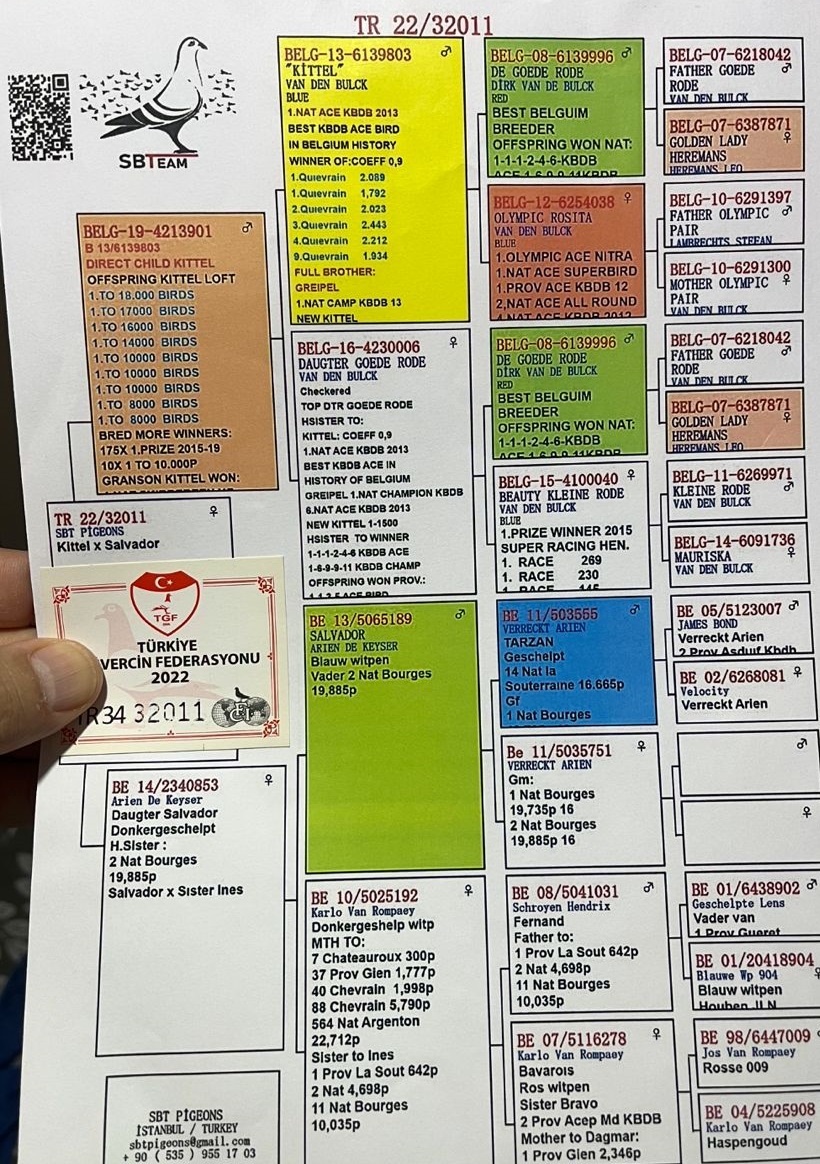 TR 22/32011
SBTEAM
BELG-19-4213901 ♂
B 13/6139803
DIRECT CHILD KITTEL
OFFSPRING KITTEL LOFT
1.TO 18.000 BIRDS
1.TO 17000 BIRDS
1.TO 16000 BIRDS
1.TO 14000 BIRDS
1.TO 10000 BIRDS
1.TO 10000 BIRDS
1.TO 10000 BIRDS
1.TO 8000 BIRDS
1.TO 8000 BIRDS
BRED MORE WINNERS:
175X 1.PRIZE 2015-19
10X 1 TO 10.000P
GRANSON KITTEL WON:
TR 22/32011 ♀
SBT PİGEONS
Kittel x Salvador
TGF
TÜRKİYE
VERCİN FEDERASYONU
2022
TR34 32011
BE 14/2340853 ♀
Arien De Keyser
Daugter Salvador
Donkergeschelpt
H.Sister :
2 Nat Bourges
19,885p
Salvador x Sıster Ines
SBT PİGEONS
İSTANBUL / TURKEY
sbtpigeons@gmail.com
+ 90 ( 535 ) 955 17 03
BELG-13-6139803 ♂
"KİTTEL"
VAN DEN BULCK
BLUE
1.NAT ACE KBDB 2013
BEST KBDB ACE BIRD
IN BELGIUM HISTORY
WINNER OF:COEFF 0,9
1.Quıevrain 2.089
1.Quıevrain 1,792
2.Quıevrain 2.023
3.Quıevrain 2.443
4.Quıevrain 2.212
9.Quıevrain 1.934
FULL BROTHER:
GREIPEL
1.NAT CAMP KBDB 13
NEW KITTEL
BELG-16-4230006 ♀
DAUGTER GOEDE RODE
VAN DEN BULCK
Checkered
TOP DTR GOEDE RODE
HSISTER TO:
KITTEL: COEFF 0,9
1.NAT ACE KBDB 2013
BEST KBDB ACE IN
HISTORY OF BELGIUM
GREIPEL 1.NAT CHAMPION KBDB
6.NAT ACE KBDB 2013
NEW KITTEL 1-1500
HSISTER TO WINNER
1-1-1-2-4-6 KBDB ACE
1-6-9-9-11 KBDB CHAMP
OFFSPRING WON PROV.:
1-1 3-5 ACE BIRD
BE 13/5065189 ♂
SALVADOR
ARIEN DE KEYSER
Blauw witpen
Vader 2 Nat Bourges
19,885p
BE 10/5025192 ♀
Karlo Van Rompaey
Donkergeshelp witp
MTH TO:
7 Chateauroux 300p
37 Prov Gien 1,777p
40 Chevrain 1,998p
88 Chevrain 5,790p
564 Nat Argenton
22,712p
Sister to Ines
1 Prov La Sout 642p
2 Nat 4,698p
11 Nat Bourges
10,035p
BELG-08-6139996 ♂
DE GOEDE RODE
DİRK VAN DE BULCK
RED
BEST BELGUIM
BREEDER
OFFSPRING WON NAT:
1-1-1-2-4-6-KBDB
ACE 1-6-9-9-11KBDB
BELG-12-6254038 ♀
OLYMPIC ROSITA
VAN DEN BULCK
BLUE
1.OLYMPIC ACE NITRA
1.NAT ACE SUPERBIRD
1.PROV ACE KBDB 12
2,NAT ACE ALL ROUND
4 NAT ACE KBDB 2012
BELG-08-6139996 ♂
DE GOEDE RODE
DİRK VAN DE BULCK
RED
BEST BELGUIM
BREEDER
OFFSPRING WON NAT:
1-1-1-2-4-6-KBDB
ACE 1-6-9-9-11KBDB
BELG-15-4100040 ♀
BEAUTY KLEINE RODE
VAN DEN BULCK
BLUE
1.PRIZE WINNER 2015
SUPER RACING HEN.
1. RACE 269
1. RACE 230
1. RACE 145
BE 11/503555 ♂
VERRECKT ARIEN
TARZAN
Geschelpt
14 Nat la
Souterraine 16.665p
Gf
1 Nat Bourges
Be 11/5035751 ♀
VERRECKT ARIEN
Gm:
1 Nat Bourges
19,735p 16
2 Nat Bourges
19,885p 16
BE 08/5041031 ♂
Schroyen Hendrix
Fernand
Father to:
1 Prov La Sout 642p
2 Nat 4,698p
11 Nat Bourges
10,035p
BE 07/5116278 ♀
Karlo Van Rompaey
Bavarois
Ros witpen
Sister Bravo
2 Prov Acep Md KBDB
Mother to Dagmar:
1 Prov Gien 2,346p
BELG-07-6218042
FATHER GOEDE ♂
RODE
VAN DEN BULCK
BELG-07-6387871
GOLDEN LADY ♀
HEREMANS
HEREMANS LEO
BELG-10-6291397
FATHER OLYMPIC ♂
PAIR
LAMBRECHTS STEFAN
BELG-10-6291300
MOTHER OLYMPIC ♀
PAIR
VAN DEN BULCK
BELG-07-6218042
FATHER GOEDE ♂
RODE
VAN DEN BULCK
BELG-07-6387871
GOLDEN LADY ♀
HEREMANS
HEREMANS LEO
BELG-11-6269971
KLEINE RODE ♂
VAN DEN BULCK
BELG-14-6091736
MAURISKA ♀
VAN DEN BULCK
BE 05/5123007 ♂
JAMES BOND
Verreckt Arien
2 Prov Asduif Kbdb
BE 02/6268081 ♀
Velocity
Verreckt Arien
♂
♀
BE 01/6438902 ♂
Geschelpte Lens
Vader van
1 Prov Gueret
BE 01/20418904
Blauwe Wp 904 ♀
Blauw witpen
Houben JLN
BE 98/6447009
Jos Van Rompaey
Rosse 009
BE 04/5225908
Karlo Van Rompaey
Haspengoud